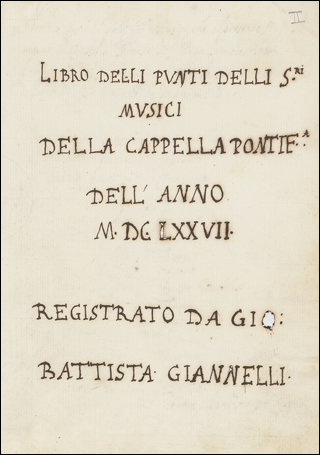 II
LIBRO DELLI PVNTI DELLI S.ri
MVSICI
DELLA CAPPELLA PONTIF.a
DELL' ANNO
M. DC LXXVII.
REGISTRATO DA GIO:
BATTISTA GIANNELLI.